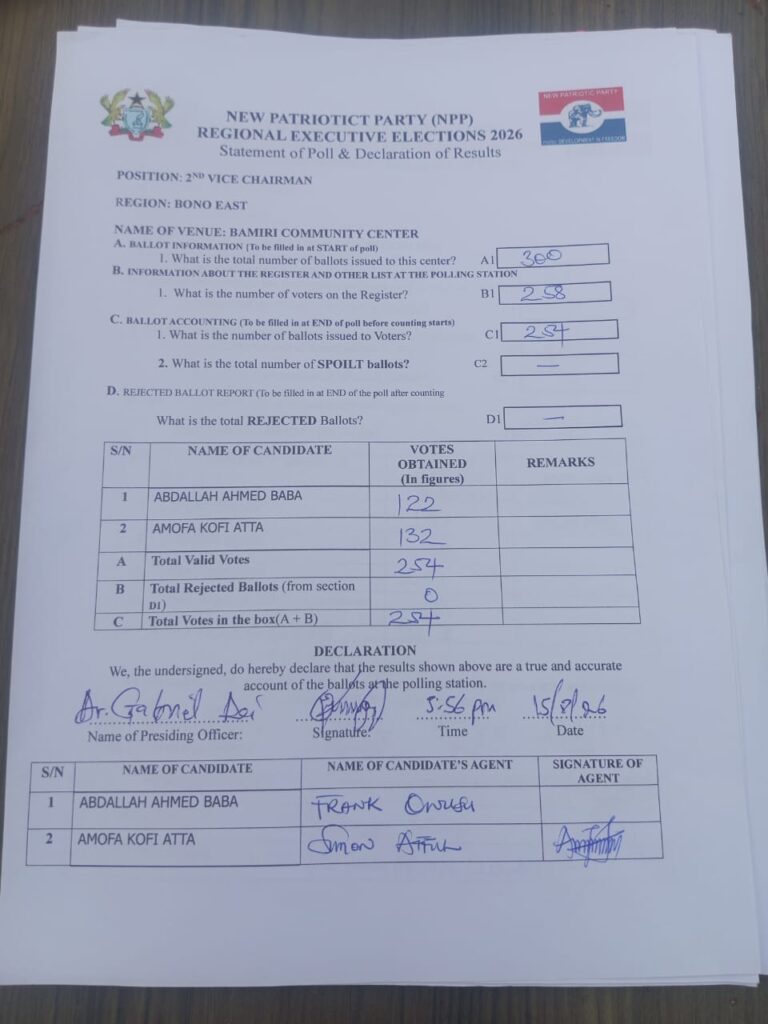 NEW PATRIOTICT PARTY (NPP)
REGIONAL EXECUTIVE ELECTIONS 2026
Statement of Poll & Declaration of Results
NEW PATRIOTIC PARTY
DEVELOPMENT IN FREEDOM
POSITION: 2ND VICE CHAIRMAN
REGION: BONO EAST
NAME OF VENUE: BAMIRI COMMUNITY CENTER
A. BALLOT INFORMATION (To be filled in at START of poll)
1. What is the total number of ballots issued to this center? A1 300
B. INFORMATION ABOUT THE REGISTER AND OTHER LIST AT THE POLLING STATION
1. What is the number of voters on the Register? B1 258
C. BALLOT ACCOUNTING (To be filled in at END of poll before counting starts)
1. What is the number of ballots issued to Voters? C1 254
2. What is the total number of SPOILT ballots? C2 —
D. REJECTED BALLOT REPORT (To be filled in at END of the poll after counting
What is the total REJECTED Ballots? D1 —
S/N NAME OF CANDIDATE VOTES OBTAINED (In figures) REMARKS
1 ABDALLAH AHMED BABA 122
2 AMOFA KOFI ATTA 132
A Total Valid Votes 254
B Total Rejected Ballots (from section D1) 0
C Total Votes in the box(A + B) 254
DECLARATION
We, the undersigned, do hereby declare that the results shown above are a true and accurate
account of the ballots at the polling station.
Dr. Gabriel 5:56 pm 15/8/26
Name of Presiding Officer: Signature: Time Date
S/N NAME OF CANDIDATE NAME OF CANDIDATE'S AGENT SIGNATURE OF AGENT
1 ABDALLAH AHMED BABA FRANK OWUSU
2 AMOFA KOFI ATTA Simon